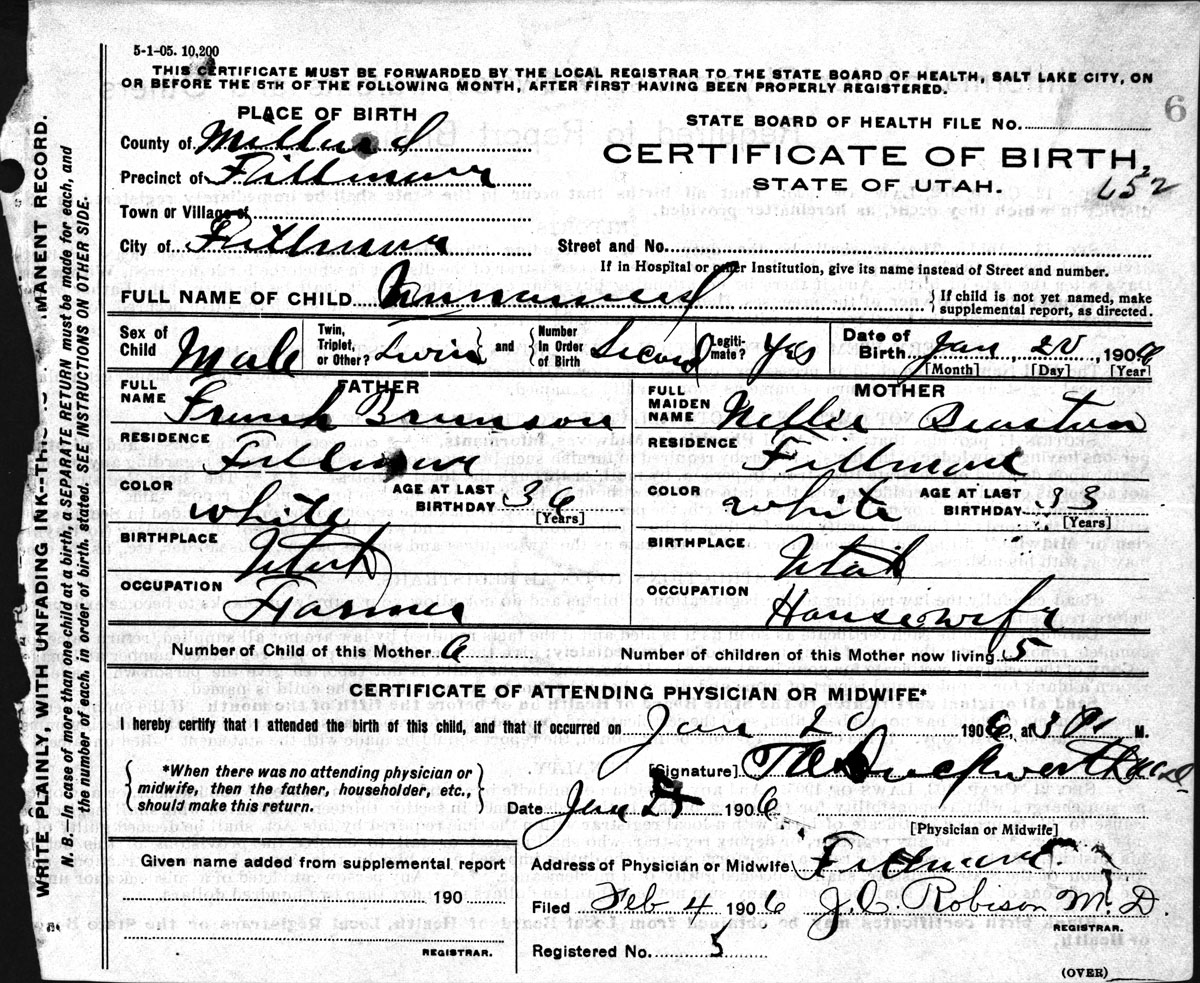 5-1-05. 10,200
THIS CERTIFICATE MUST BE FORWARDED BY THE LOCAL REGISTRAR TO THE STATE BOARD OF HEALTH, SALT LAKE CITY, ON
OR BEFORE THE 5TH OF THE FOLLOWING MONTH, AFTER FIRST HAVING BEEN PROPERLY REGISTERED.
6
PLACE OF BIRTH
STATE BOARD OF HEALTH FILE NO.
County of Millard
CERTIFICATE OF BIRTH,
Precinct of Fillmore
STATE OF UTAH.
652
Town or Village of
City of Fillmore
Street and No.
If in Hospital or other Institution, give its name instead of Street and number.
FULL NAME OF CHILD Unnamed
If child is not yet named, make
supplemental report, as directed.
Sex of Child Male Twin, Triplet, or Other? Twin and Number In Order of Birth Second Legiti-mate? Yes Date of Birth Jan, 20, 190
[Month] [Day] [Year]
FATHER
MOTHER
FULL NAME Frank Brunson
FULL MAIDEN NAME
RESIDENCE Fillmore
RESIDENCE Fillmore
COLOR White AGE AT LAST BIRTHDAY 36 [Years]
COLOR White AGE AT LAST BIRTHDAY 33 [Years]
BIRTHPLACE Utah
BIRTHPLACE Utah
OCCUPATION Farmer
OCCUPATION Housewife
Number of Child of this Mother 6 Number of children of this Mother now living 5
CERTIFICATE OF ATTENDING PHYSICIAN OR MIDWIFE*
I hereby certify that I attended the birth of this child, and that it occurred on Jan 20 1906, at 3 P M.
*When there was no attending physician or
midwife, then the father, householder, etc.,
should make this return.
[Signature]
Date Jan 1906
[Physician or Midwife]
Given name added from supplemental report
190
REGISTRAR.
Address of Physician or Midwife Fillmore
Filed Feb 4 1906 J.C. Robison M.D.
REGISTRAR.
Registered No. 5
(OVER)
WRITE PLAINLY, WITH UNFADING INK--THIS IS MANENT RECORD.
N. B. In case of more than one child at a birth, a SEPARATE RETURN must be made for each, and
the number of each, in order of birth, stated. SEE INSTRUCTIONS ON OTHER SIDE.